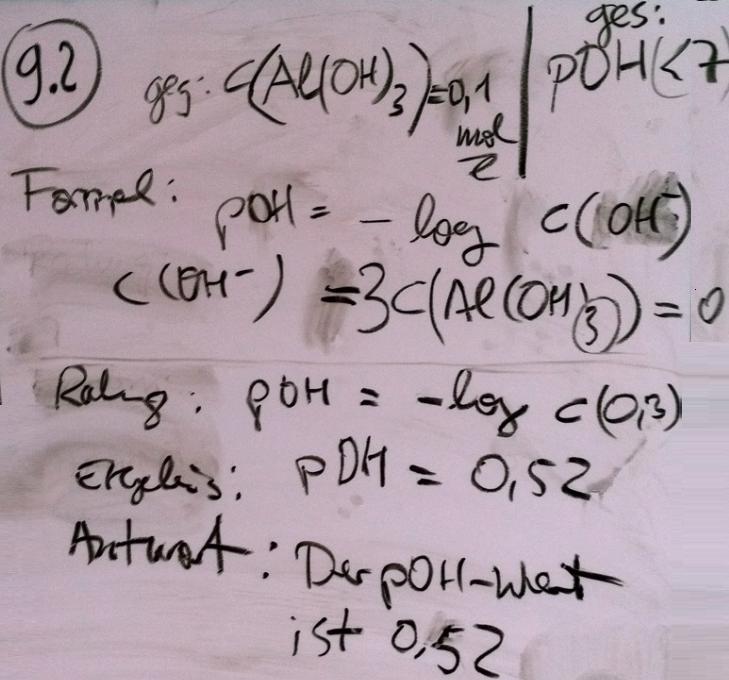 9.2 geg: C(Al(OH)₃)=0,1 mol/l | ges: pOH(<7
Formel: pOH = - log C(OH⁻)
C(OH⁻) =3C(Al(OH)₃) = 0
: pOH = -log C(0,3)
: pOH = 0,52
Antwort: Der pOH-Wert
ist 0,52